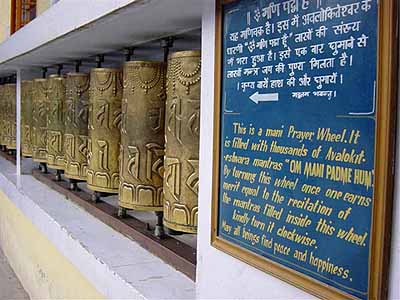 ॥ ॐ मणि पद्मे हूँ ॥
यह मणिचक्र है। इस में अवलोकितेश्वर के
धारणी "ॐ मणि पद्मे हूँ" लाखों की संख्या
में भरा हुआ है। इसे एक बार घुमाने से
लाखों मन्त्र जप की पुण्य मिलता है।
। कृपया दायें हाथ की और घुमायें।
This is a mani Prayer Wheel. It
is filled with thousands of Avalokit-
eshvara mantras "OM MANI PADME HUM".
By turning this wheel once one earns
merit equal to the recitation of
the mantras filled inside this wheel.
kindly turn it clockwise.
May all beings find peace and happiness.